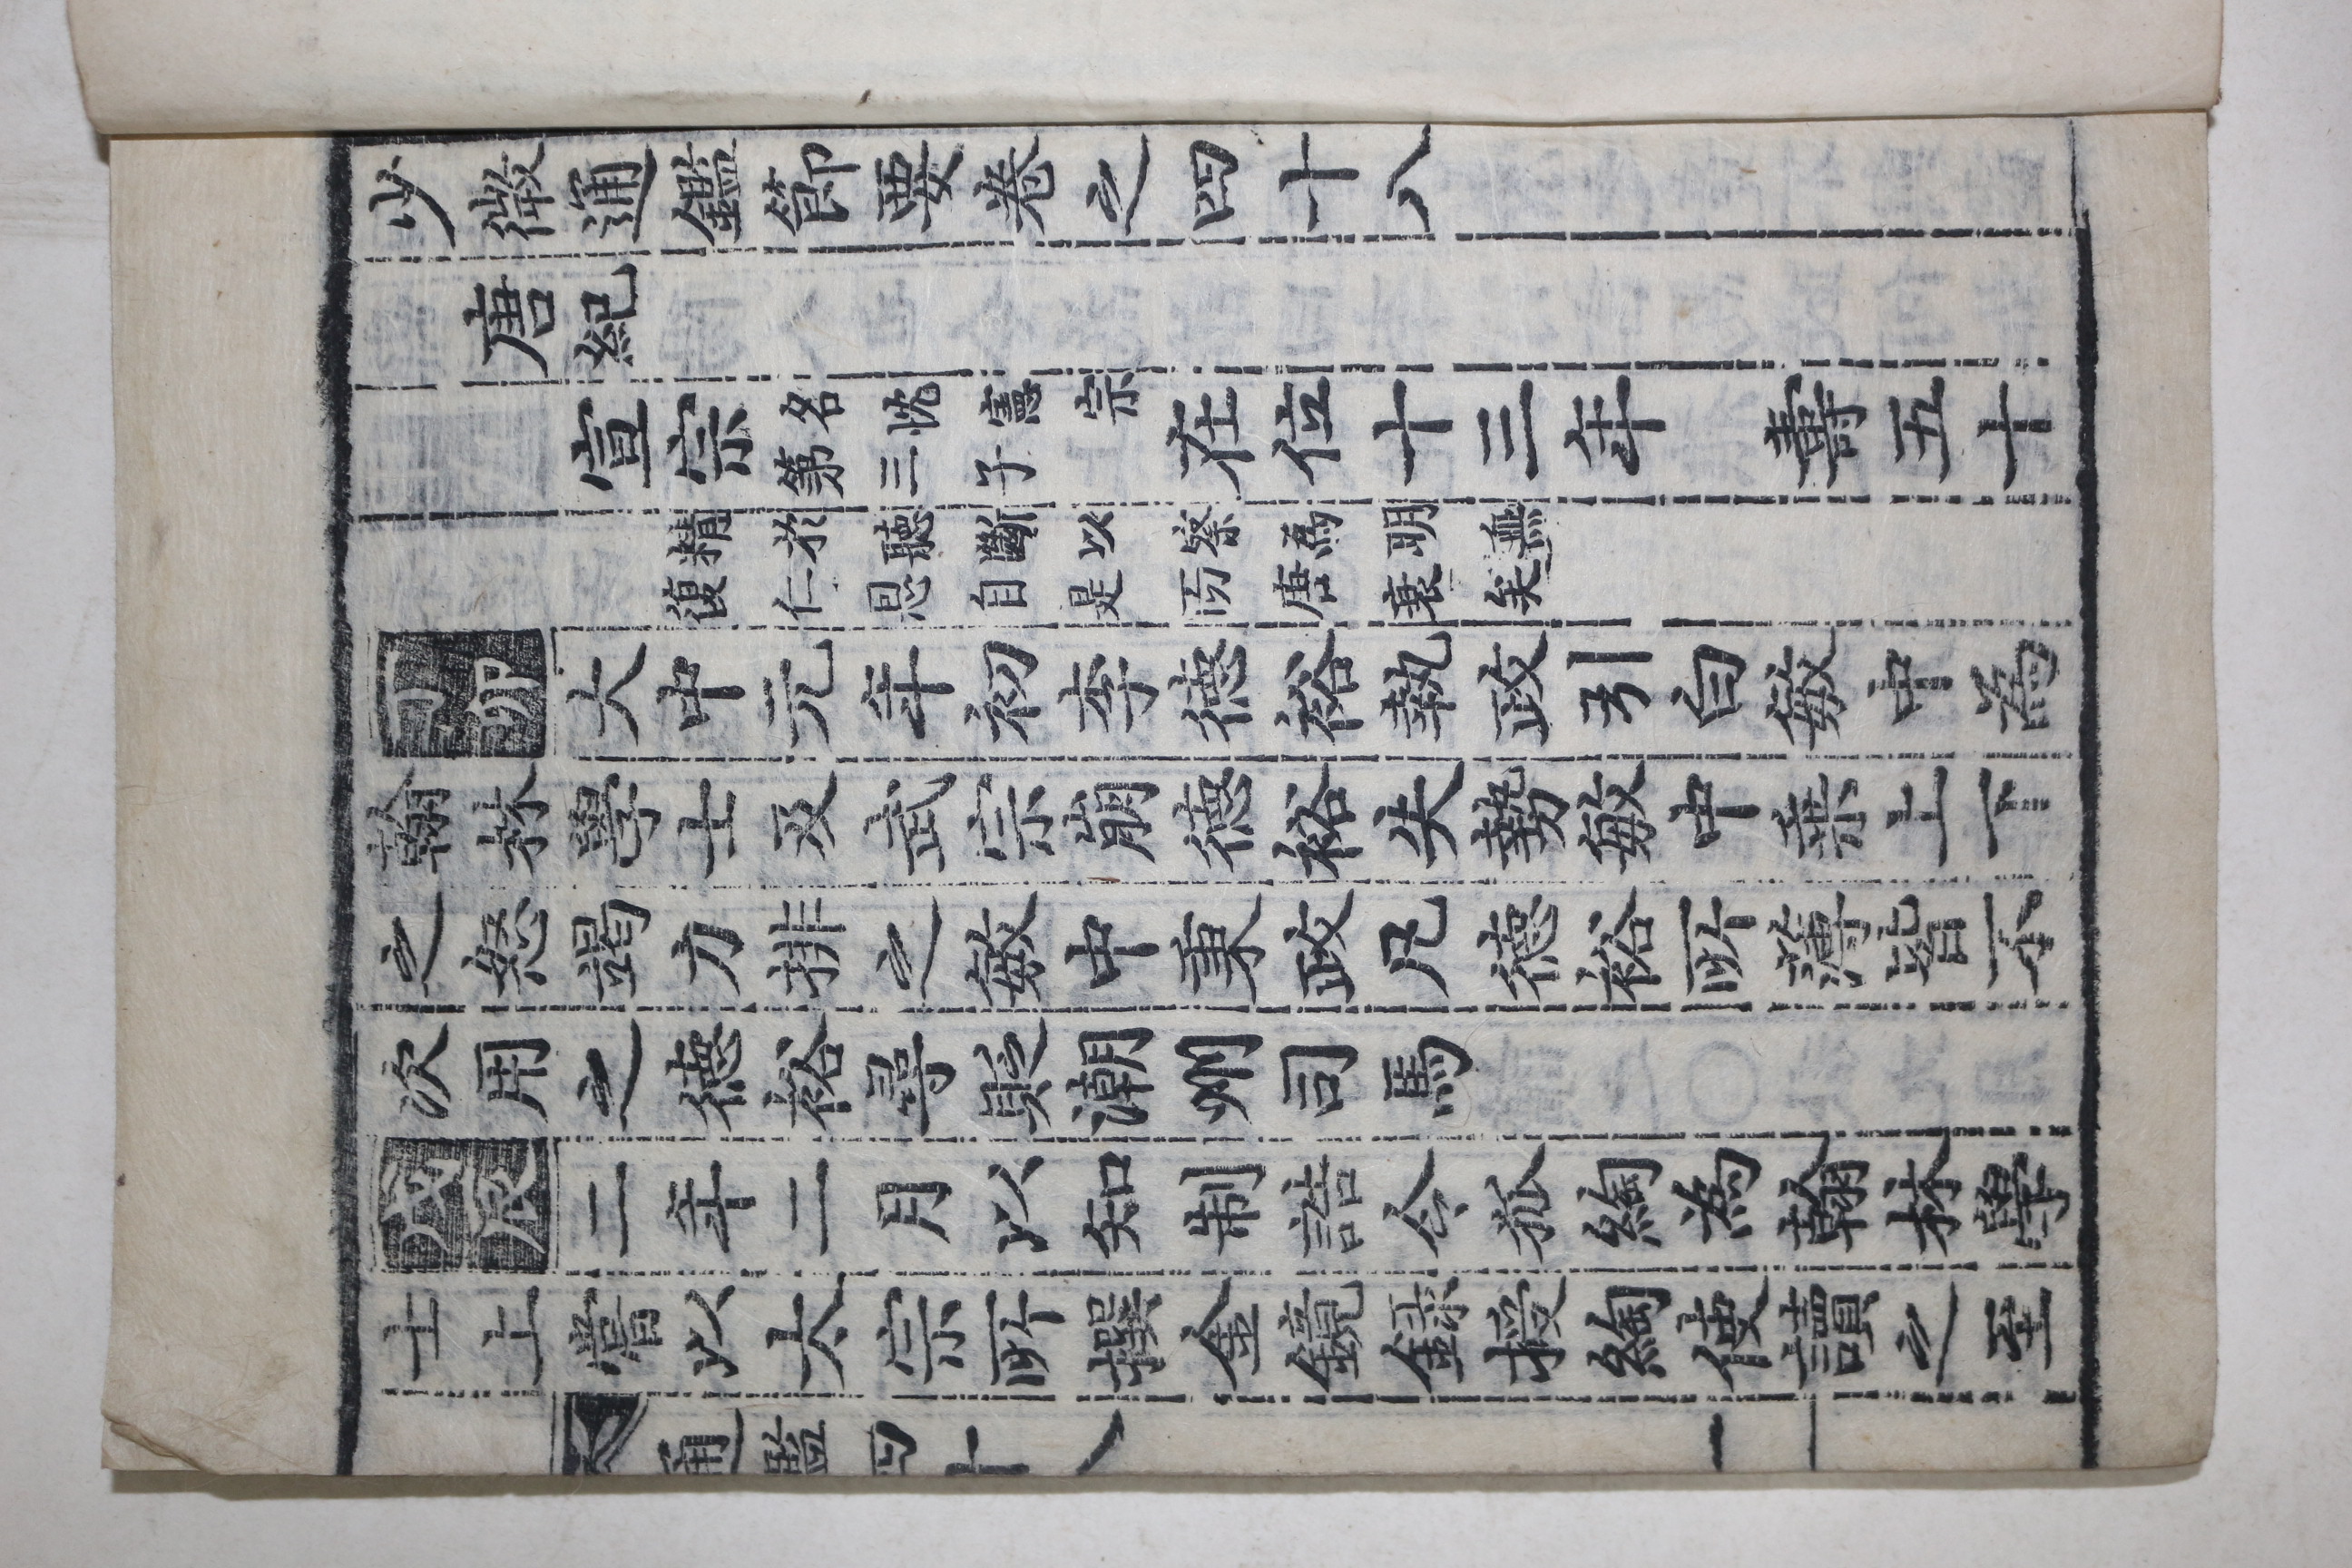 少微通鑑節要卷之四十八
唐紀
宣宗 名忱憲宗第三子 在位十三年 壽五十
精於聽斷以察爲明無
復仁恩自是而唐衰矣
丁卯 大中元年初李德裕執政引白敏中爲
翰林學士及武宗崩德裕失勢敏中乘上下
之怒竭力排之敏中秉政凡德裕所薄皆不
次用之德裕尋貶潮州司馬
戊辰 二年二月以知制誥令狐綯爲翰林學
士上嘗以太宗所撰金鏡錄授綯使讀之至
通鑑四十八 一